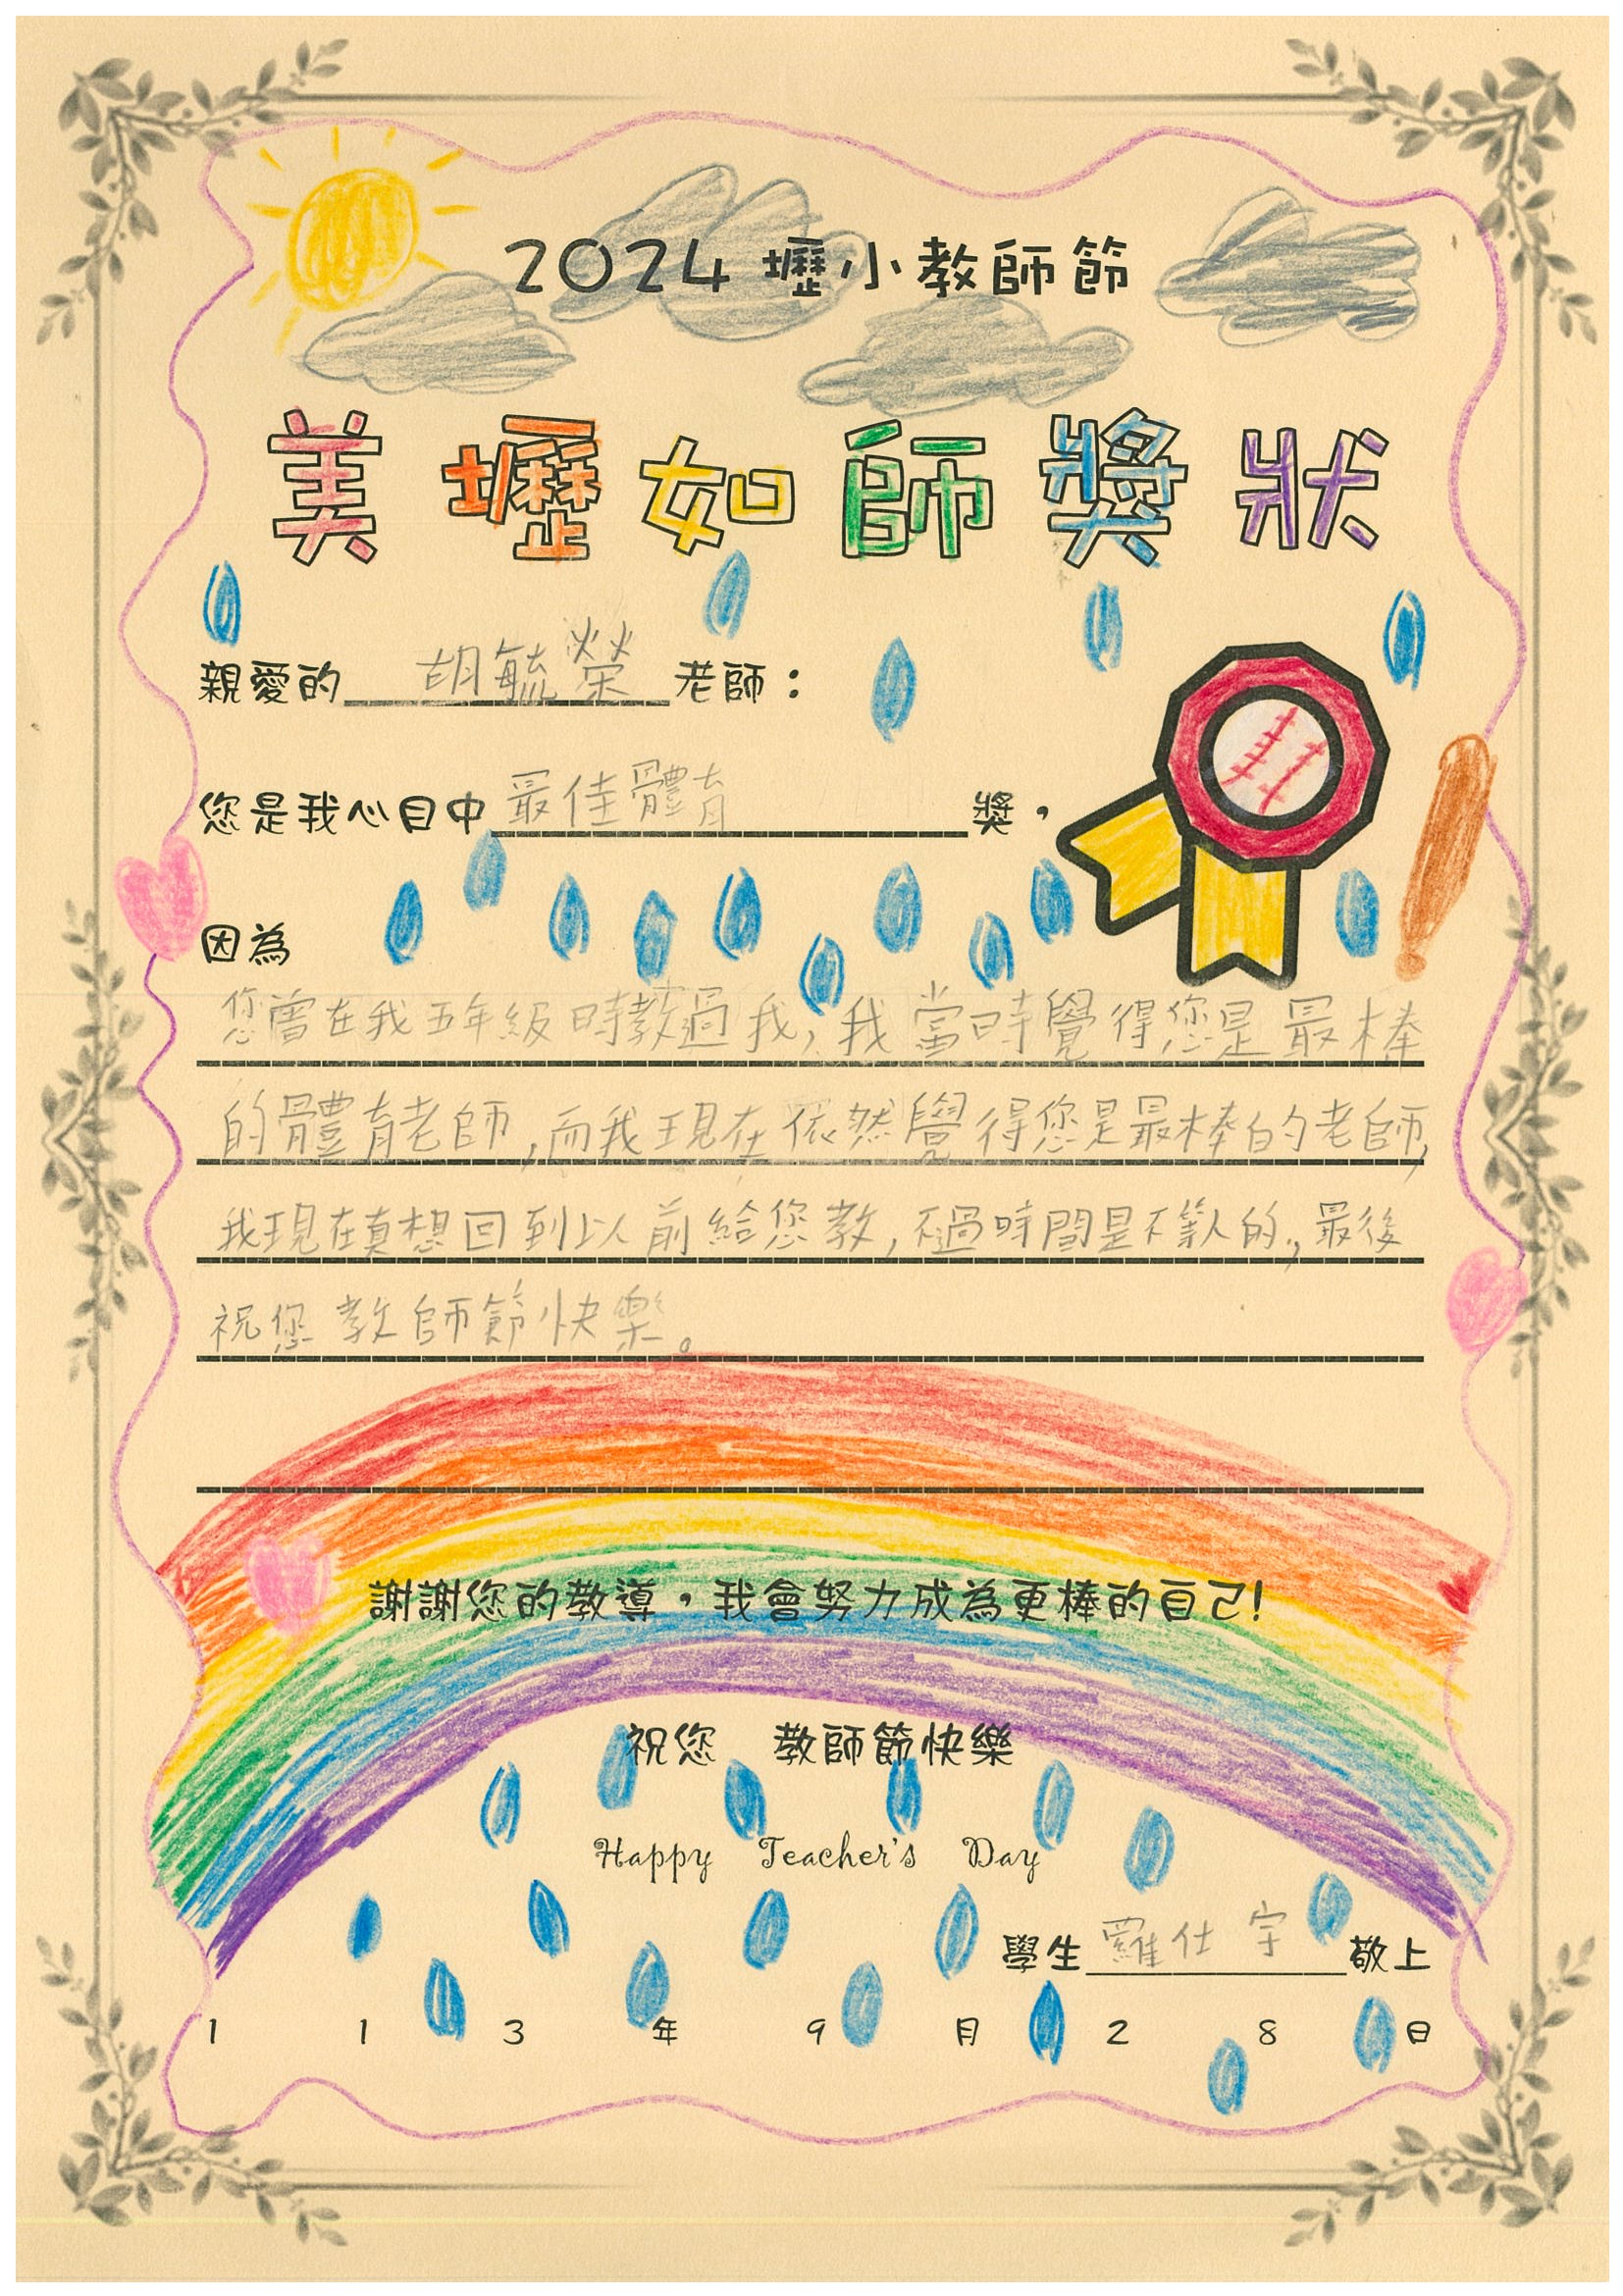 2024 壢小教師節
美壢如師獎狀
親愛的胡毓榮老師：
您是我心目中最佳體育獎，
因為
您曾在我五年級時教過我,我當時覺得您是最棒
的體育老師,而我現在依然覺得您是最棒的老師,
我現在真想回到以前給您教,不過時間是不等人的,最後
祝您教師節快樂。
謝謝您的教導，我會努力成為更棒的自己!
祝您 教師節快樂
Happy Teacher's Day
學生羅仕宇敬上
113年9月28日